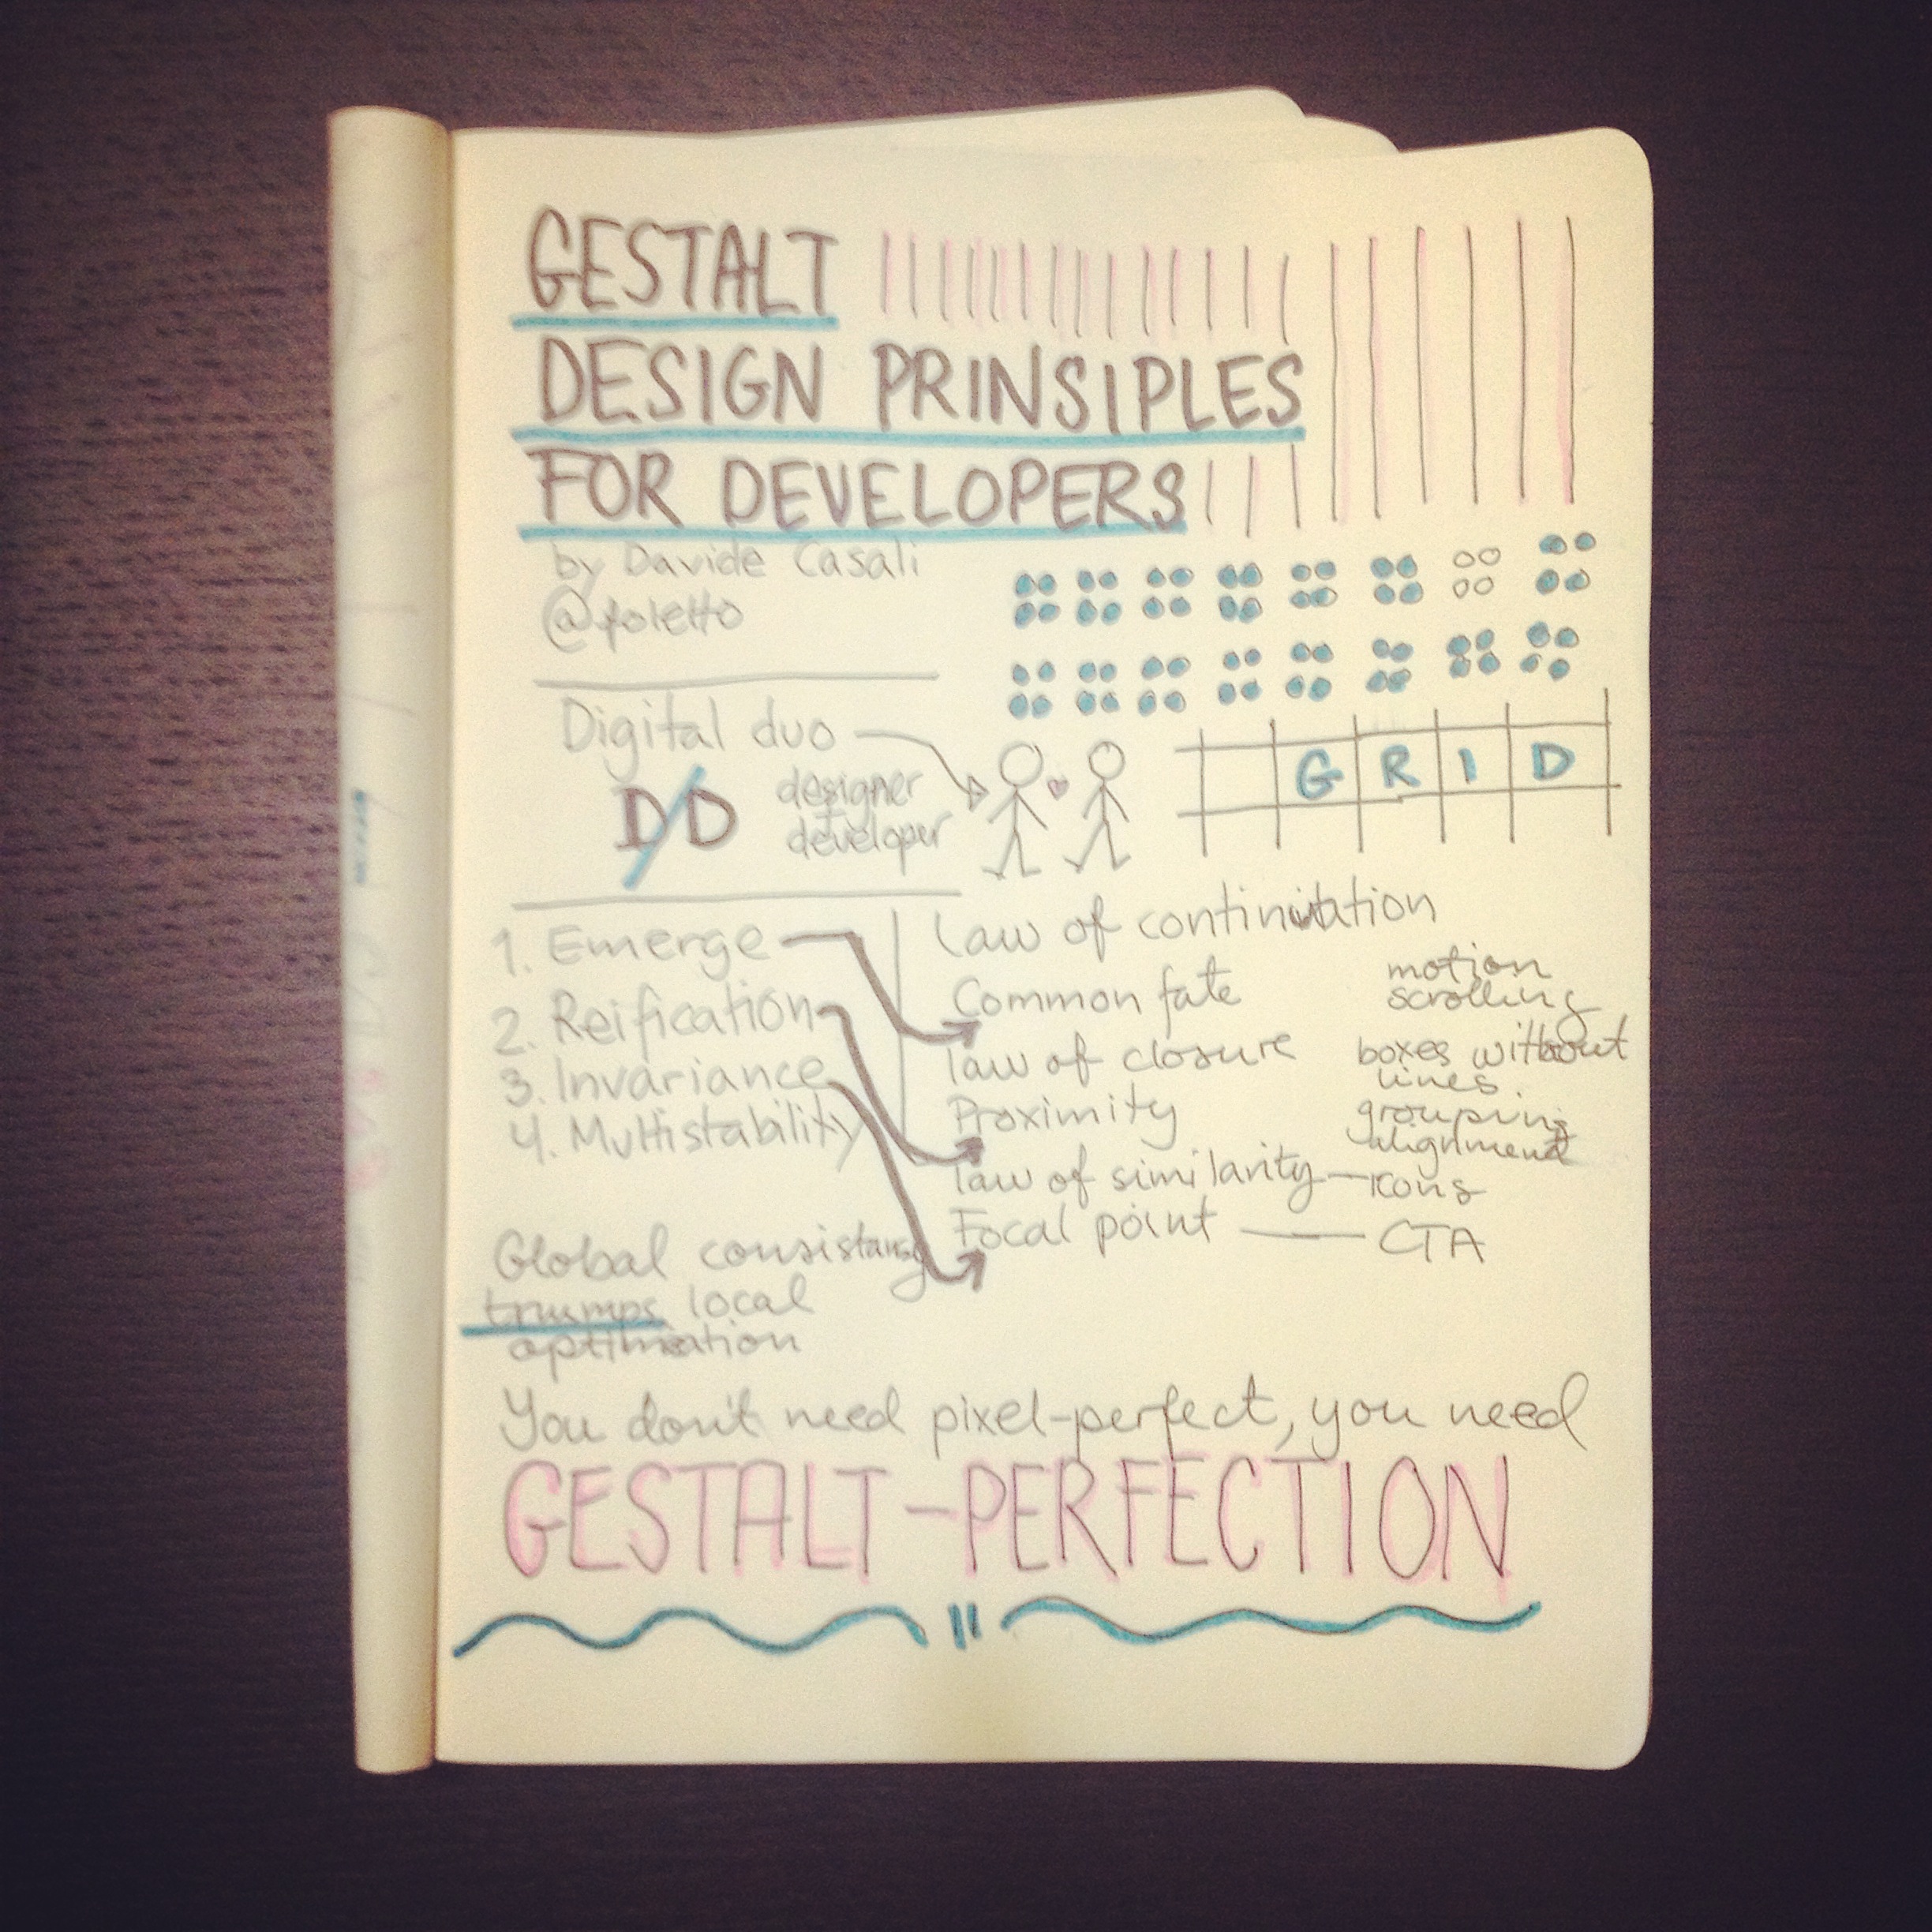 GESTALT
DESIGN PRINSIPLES
FOR DEVELOPERS
by Davide Casali
@folletto
Digital duo
D/D
designer
developer
G R I D
1. Emerge
2. Reification
3. Invariance
4. Multistability
Law of continuation
Common fate
motion
scrolling
law of closure
boxes without
lines.
Proximity
grouping
alignment
law of similarity — icons
Focal point — CTA
Global consistancy
trumps local
optimization
You don't need pixel-perfect, you need
GESTALT-PERFECTION